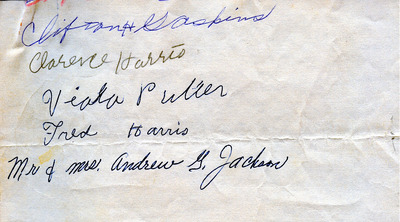 Clifton H Gaskins
Clarence Harris
Viola Puller
Fred Harris
Mr & Mrs. Andrew G. Jackson